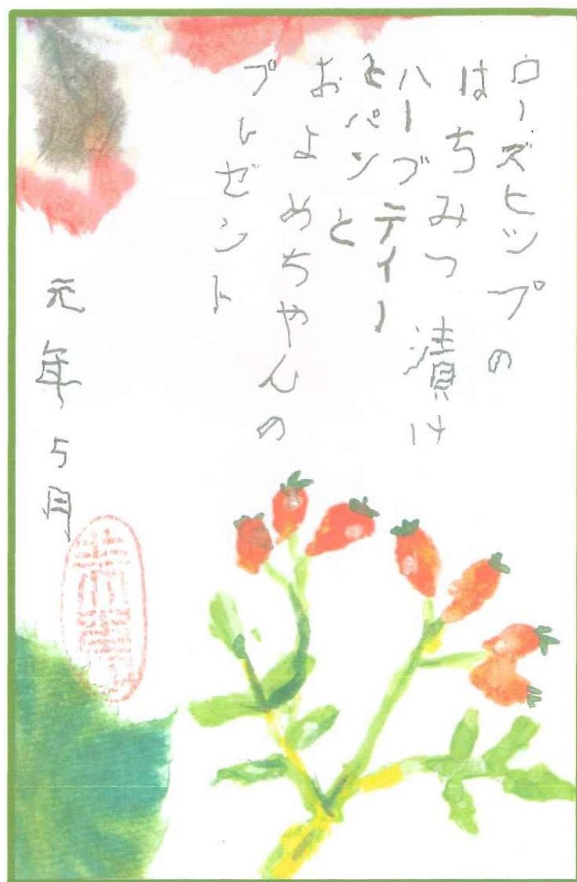 ローズヒップの
はちみつ漬け
ハーブティー
とパンと
およめちゃんの
プレゼント
元年5月